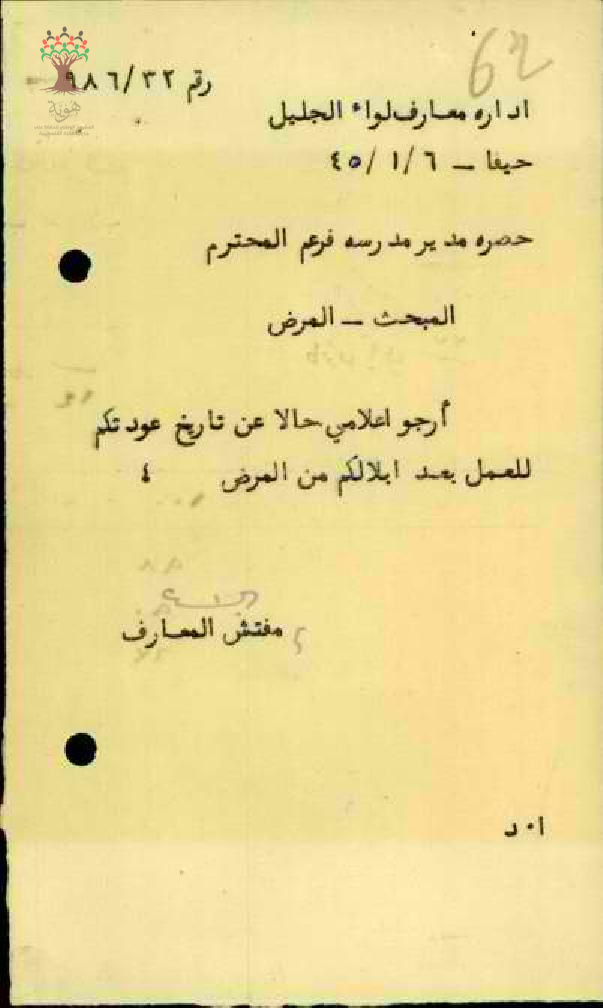 62
رقم ٩٨٦/٣٢
هوية
اداره معارف لواء الجليل
حيفا – ٤٥/١/٦
حضره مدير مدرسه فرعم المحترم
المبحث – المرض
أرجو اعلامي حالا عن تاريخ عودتكم
للعمل بعد ابلالكم من المرض ٤
مفتش المعارف
ا٠ د